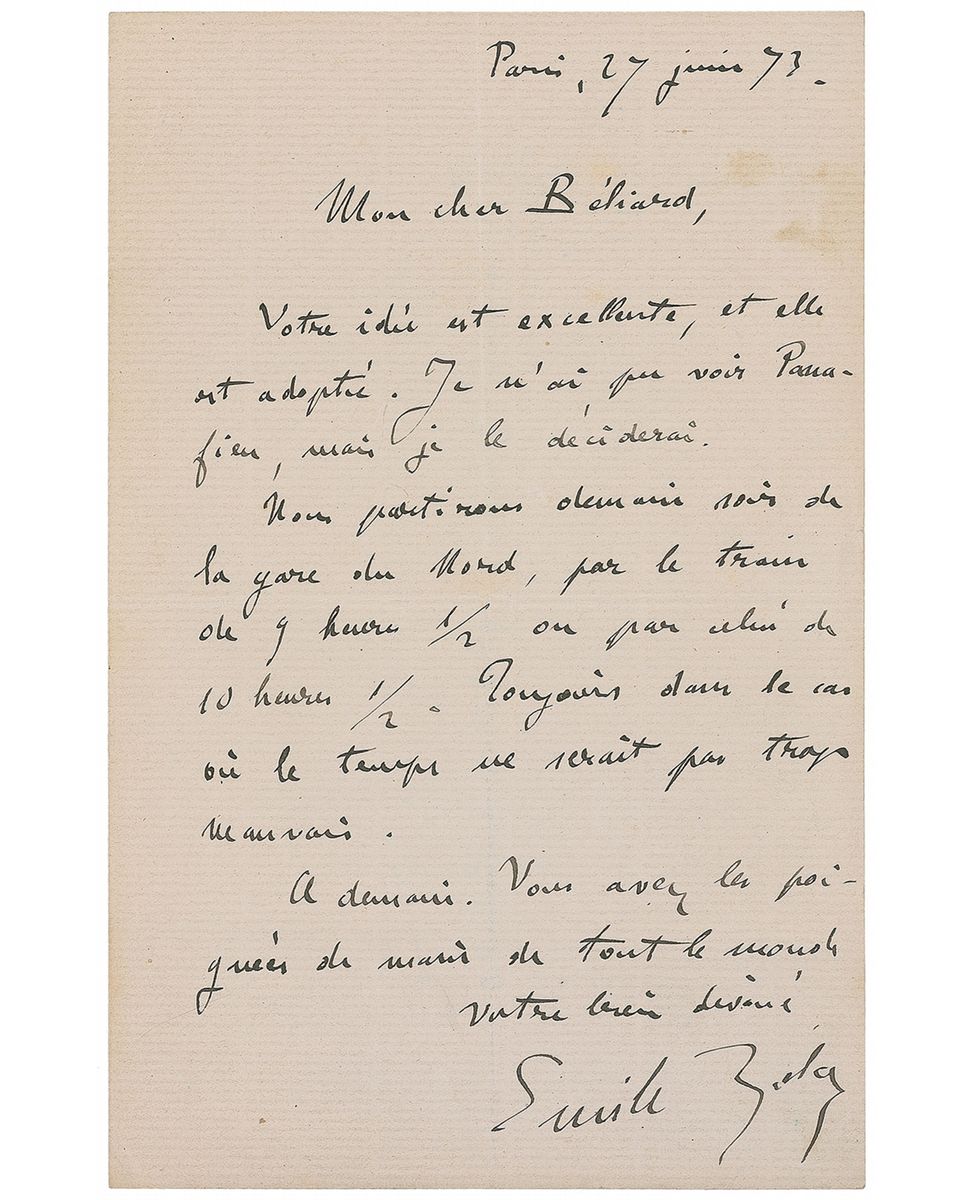 Paris, 27 juin 73.
Mon cher Béliard,
Votre idée est excellente, et elle
est adoptée. Je n'ai pu voir Pana-
fieu, mais je le déciderai.
Nous partirons demain soir de
la gare du Nord, par le train
de 9 heures 1/2 ou par celui de
10 heures 1/2. Toujours dans le cas
où le temps ne serait pas trop
mauvais.
A demain. Vous avez les poi-
gnées de main de tout le monde
votre bien dévoué
Emile Zola